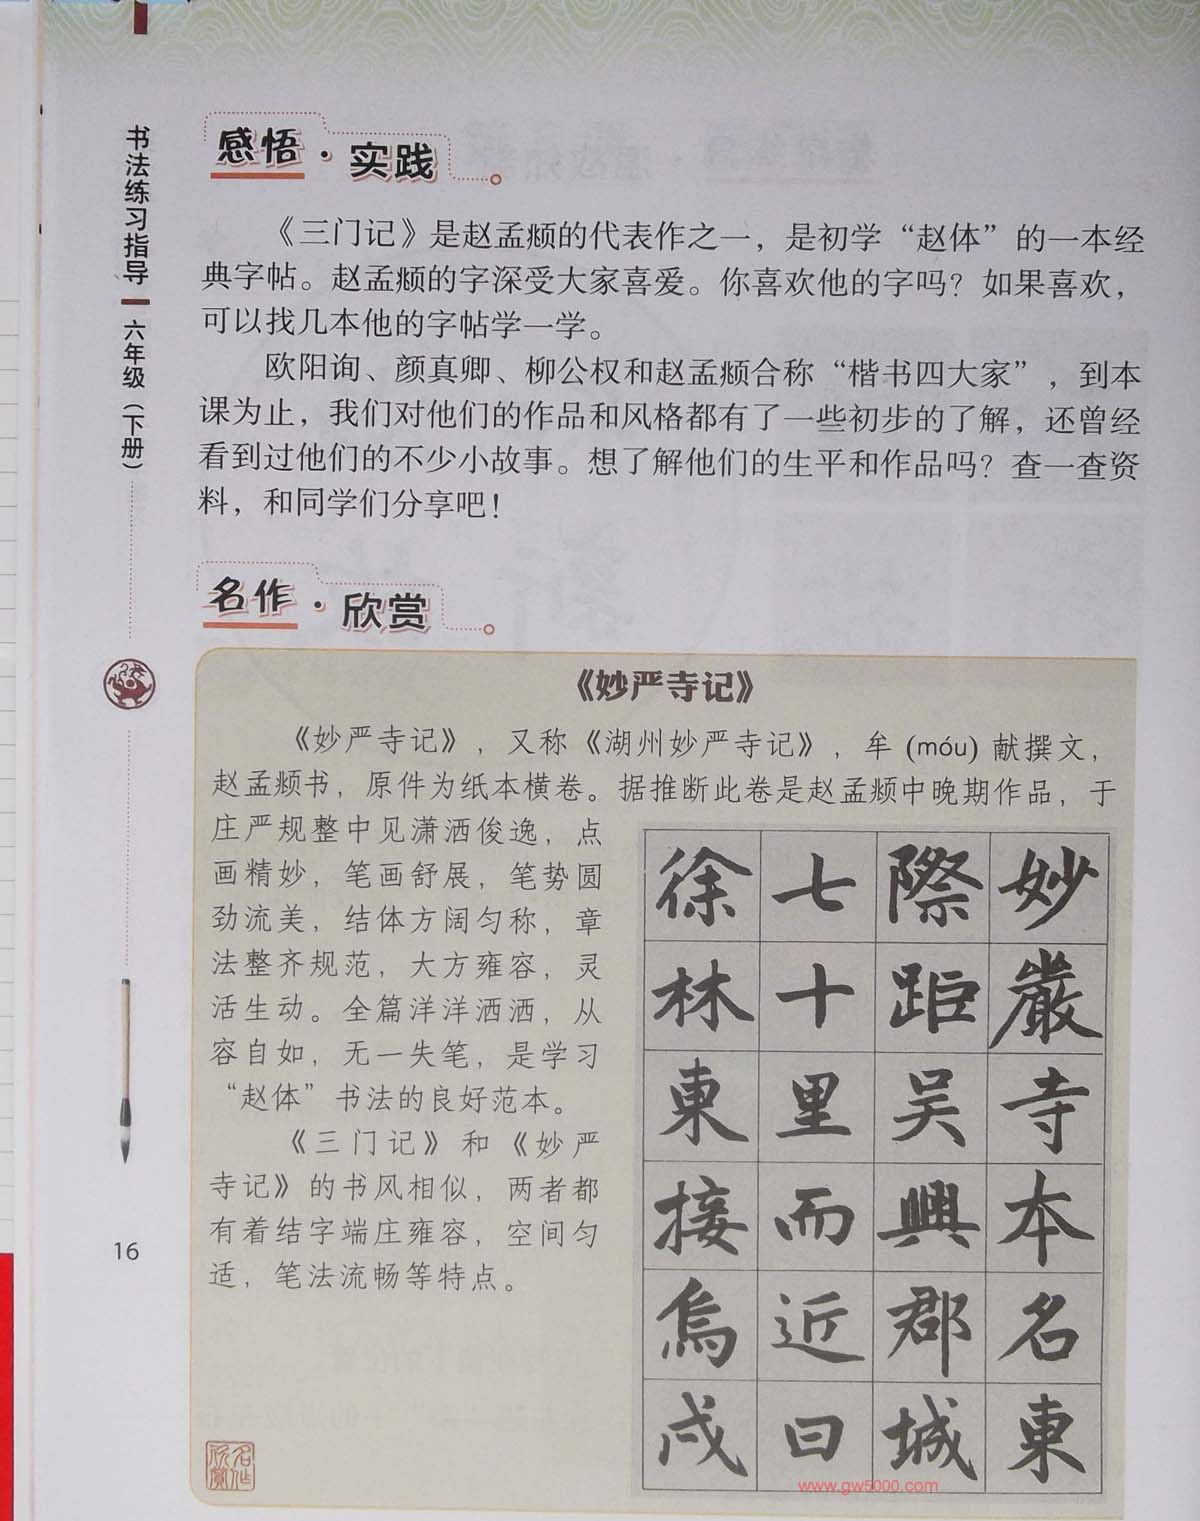 书法练习指导
六年级（下册）
16
感悟·实践
《三门记》是赵孟頫的代表作之一，是初学“赵体”的一本经
典字帖。赵孟頫的字深受大家喜爱。你喜欢他的字吗？如果喜欢，
可以找几本他的字帖学一学。
欧阳询、颜真卿、柳公权和赵孟頫合称“楷书四大家”，到本
课为止，我们对他们的作品和风格都有了一些初步的了解，还曾经
看到过他们的不少小故事。想了解他们的生平和作品吗？查一查资
料，和同学们分享吧！
名作·欣赏
《妙严寺记》
《妙严寺记》，又称《湖州妙严寺记》，牟 (móu) 献撰文，
赵孟頫书，原件为纸本横卷。据推断此卷是赵孟頫中晚期作品，于
庄严规整中见潇洒俊逸，点
画精妙，笔画舒展，笔势圆
劲流美，结体方阔匀称，章
法整齐规范，大方雍容，灵
活生动。全篇洋洋洒洒，从
容自如，无一失笔，是学习
“赵体”书法的良好范本。
《三门记》和《妙严
寺记》的书风相似，两者都
有着结字端庄雍容，空间匀
适，笔法流畅等特点。
妙嚴寺本名東
際距吴興郡城
七十里而近曰
徐林東接烏戍
名作欣赏
www.gw5000.com